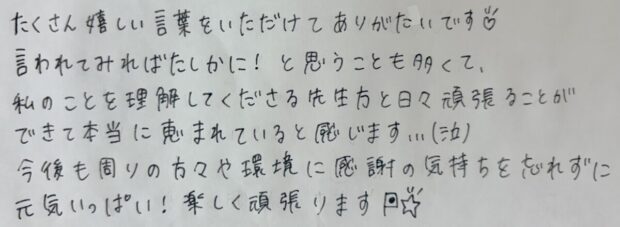 たくさん嬉しい言葉をいただけてありがたいです♡
言われてみればたしかに！と思うことも多くて、
私のことを理解してくださる先生方と日々頑張ることが
できて本当に恵まれていると感じます...(泣)
今後も周りの方々や環境に感謝の気持ちを忘れずに
元気いっぱい！楽しく頑張ります☆